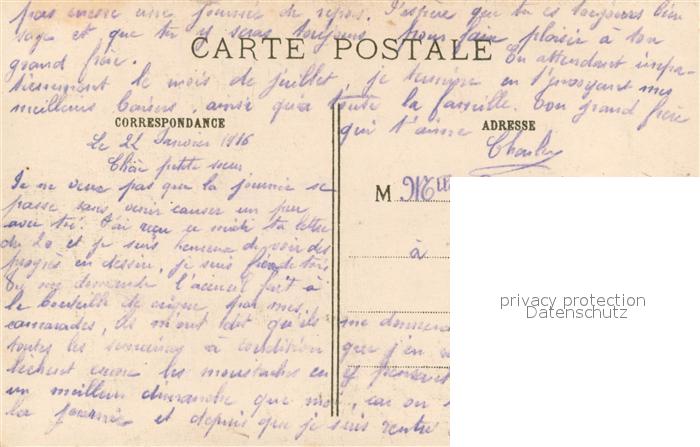 pas encore une journée de repos. J'espère que tu es toujours bien
sage et que tu y seras toujours pour faire plaisir à ton
grand frère. En attendant impa-
CARTE POSTALE
tiemment le mois de juillet, je termine en t'envoyant mes
meilleurs baisers, ainsi qu'à toute la famille. Ton grand frère
qui t'aime
CORRESPONDANCE
ADRESSE
Charles
Le 22 Janvier 1916
Chère petite sœur
Je ne veux pas que la journée se
passe sans venir causer un peu
avec toi. J'ai reçu ce midi ta lettre
du 20 et je suis heureux de voir des
progrès en dessin, je suis fier de toi
Tu me demande l'accueil fait à
la bouteille de par mes
camarades, ils m'ont dit qu'ils
toutes les semaines à condition
lèchent encore les moustaches en
un meilleur dimanche que moi, car on
la journée et depuis que je suis rentré
M Mlle
à
me donne
que j'en
y
privacy protection
Datenschutz